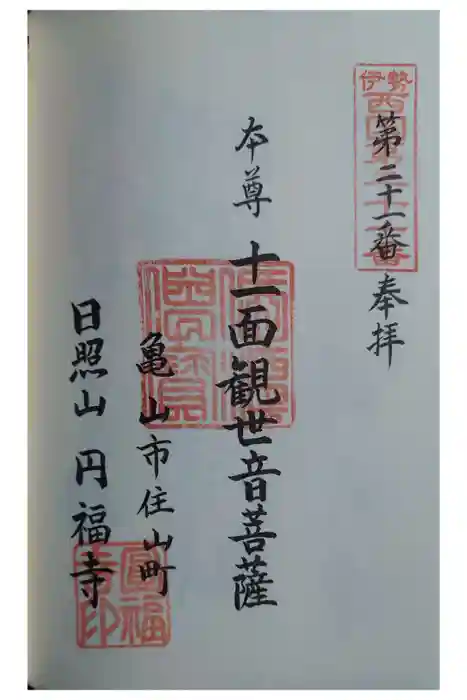 伊勢
西国第二十一番
第二十一番 奉拝
本尊 十一面観世音菩薩
亀山市住山町
日照山 円福寺
圓福寺印